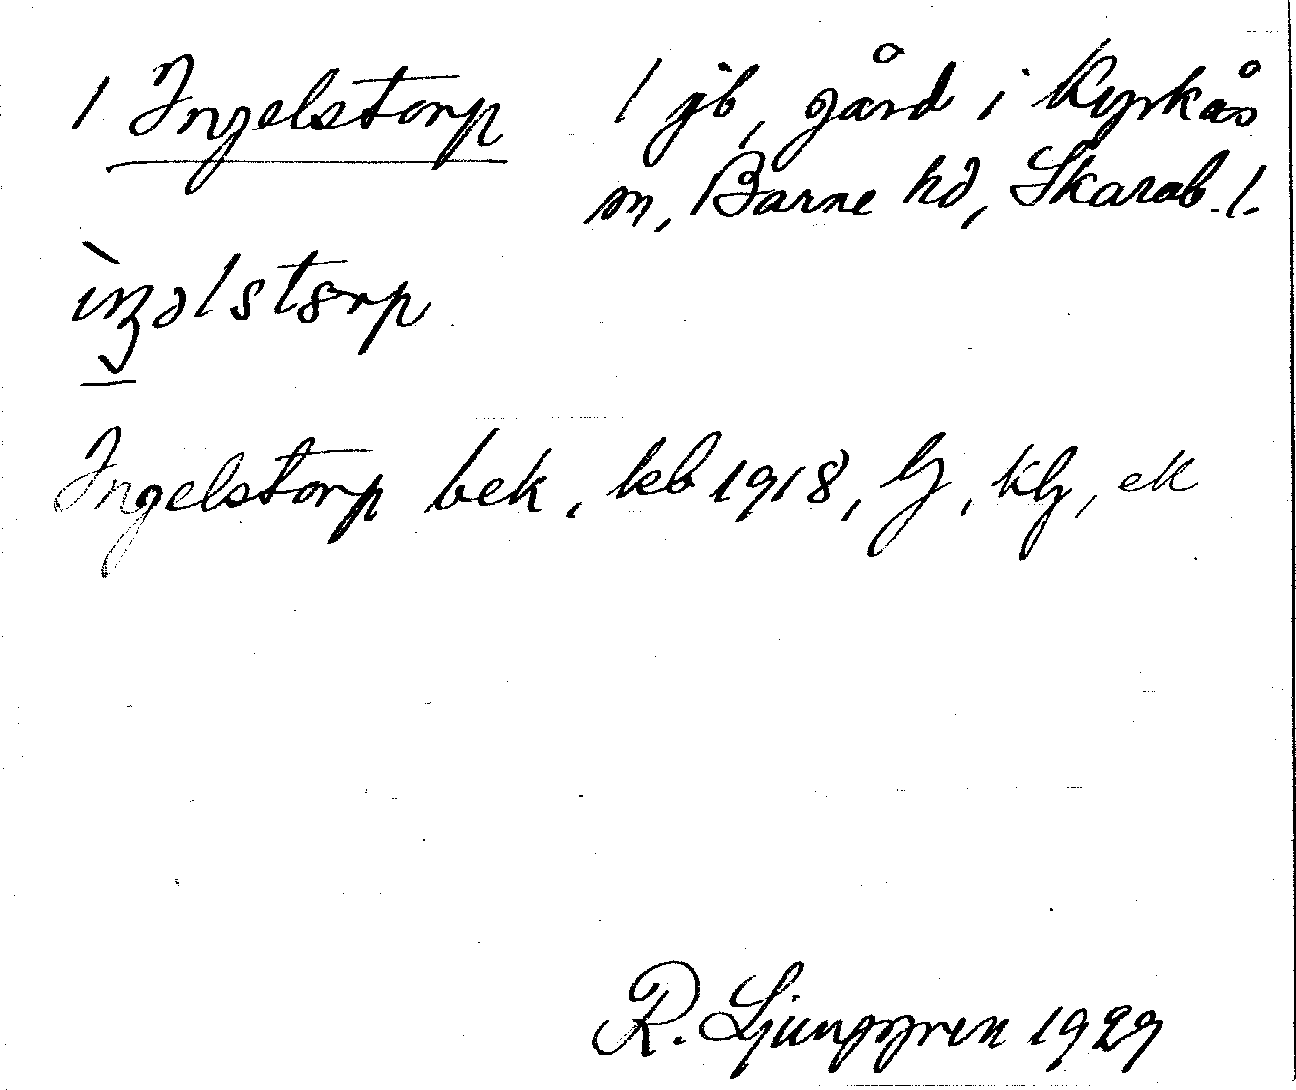 1 Ingelstorp 1 jb, gård i Kyrkås
sn, Barne hd, Skarab. l.
Ingelstorp bek, kb 1918, G, kG, ek
R. Ljunggren 1929